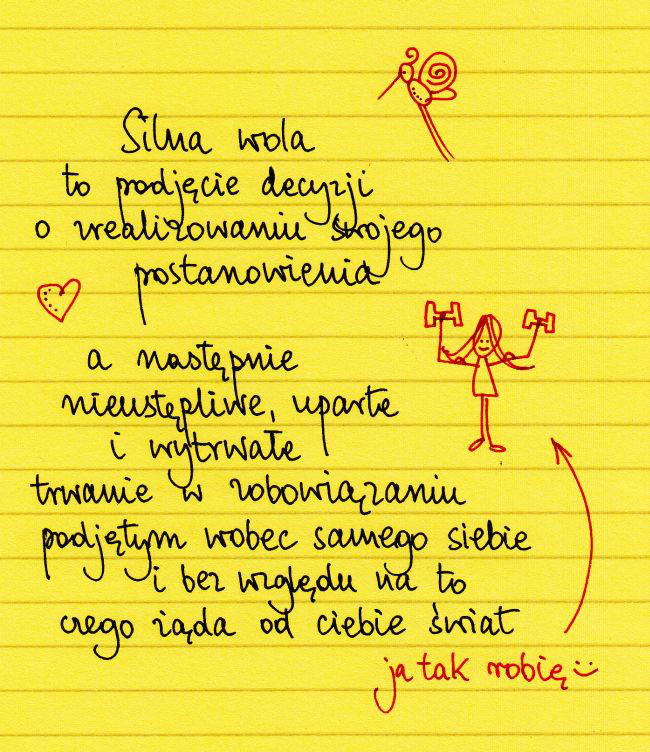 Silna wola
to podjęcie decyzji
o zrealizowaniu swojego
postanowienia
a następnie
nieustępliwe, uparte
i wytrwałe
trwanie w zobowiązaniu
podjętym wobec samego siebie
i bez względu na to
czego żąda od ciebie świat
ja tak robię :)